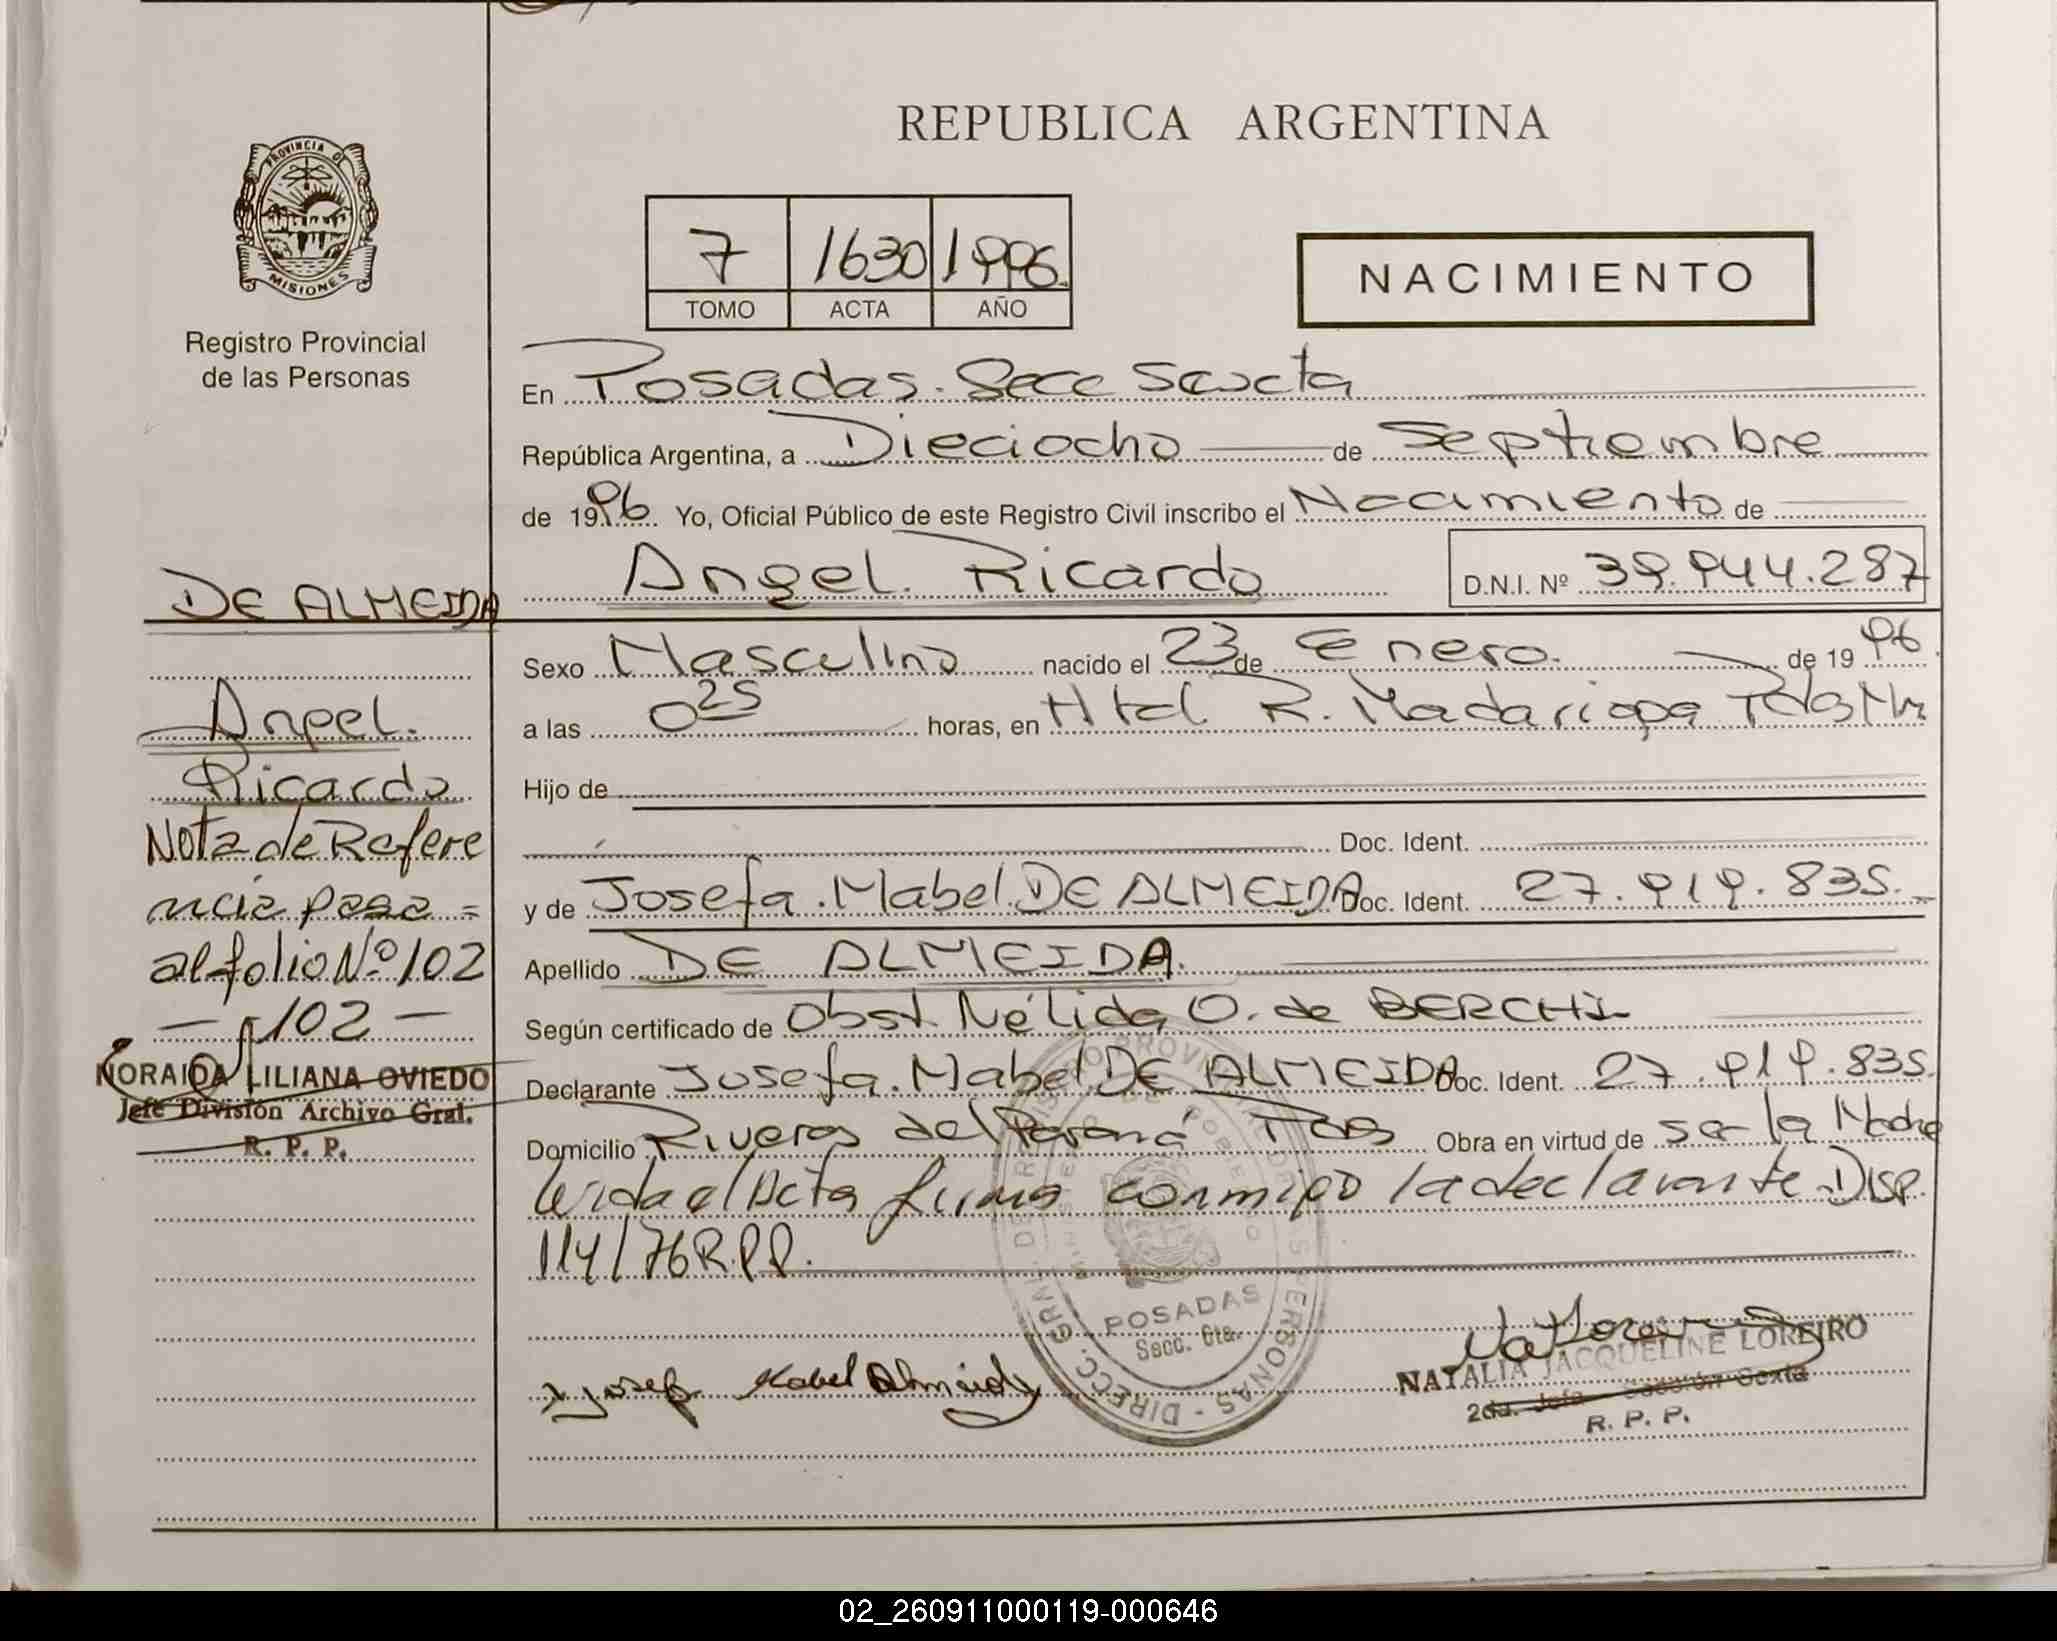 REPUBLICA ARGENTINA
PROVINCIA DE
MISIONES
Registro Provincial
de las Personas
7 1630 1996
TOMO ACTA AÑO
NACIMIENTO
En Posadas. Secc Sexta
República Argentina, a Dieciocho de Septiembre
de 1996 Yo, Oficial Público de este Registro Civil inscribo el Nacimiento de
Angel. Ricardo D.N.I. Nº 39.944.287
DE ALMEIDA
Angel.
Ricardo
Nota de Refere
ncia pasa =
al folio Nº 102
- 102 -
NORAIDA LILIANA OVIEDO
Jefe División Archivo Gral.
R. P. P.
Sexo Masculino nacido el 23 de Enero. de 1996
a las 0 25 horas, en Htal R. Madariaga Pdas Mnes
Hijo de
Doc. Ident.
y de Josefa. Mabel DE ALMEIDA Doc. Ident. 27.919.835.
Apellido DE ALMEIDA.
Según certificado de Obst. Nélida O. de BERCHI
Declarante Josefa. Mabel DE ALMEIDA Doc. Ident. 27.919.835.
Domicilio Riveras del Paraná Pdas Obra en virtud de ser la Madre
Leida el Acta firma conmigo la declarante Disp.
114/76 R.P.P.
DIRECC. GRAL. DE REGISTRO PROVINCIAL DE LAS PERSONAS
MINISTERIO DE GOBIERNO
POSADAS
Secc. 6ta.
Josefa Mabel Almeida
NATALIA JACQUELINE LOREIRO
2da. Jefa Sección Sexta
R. P. P.
02_260911000119-000646